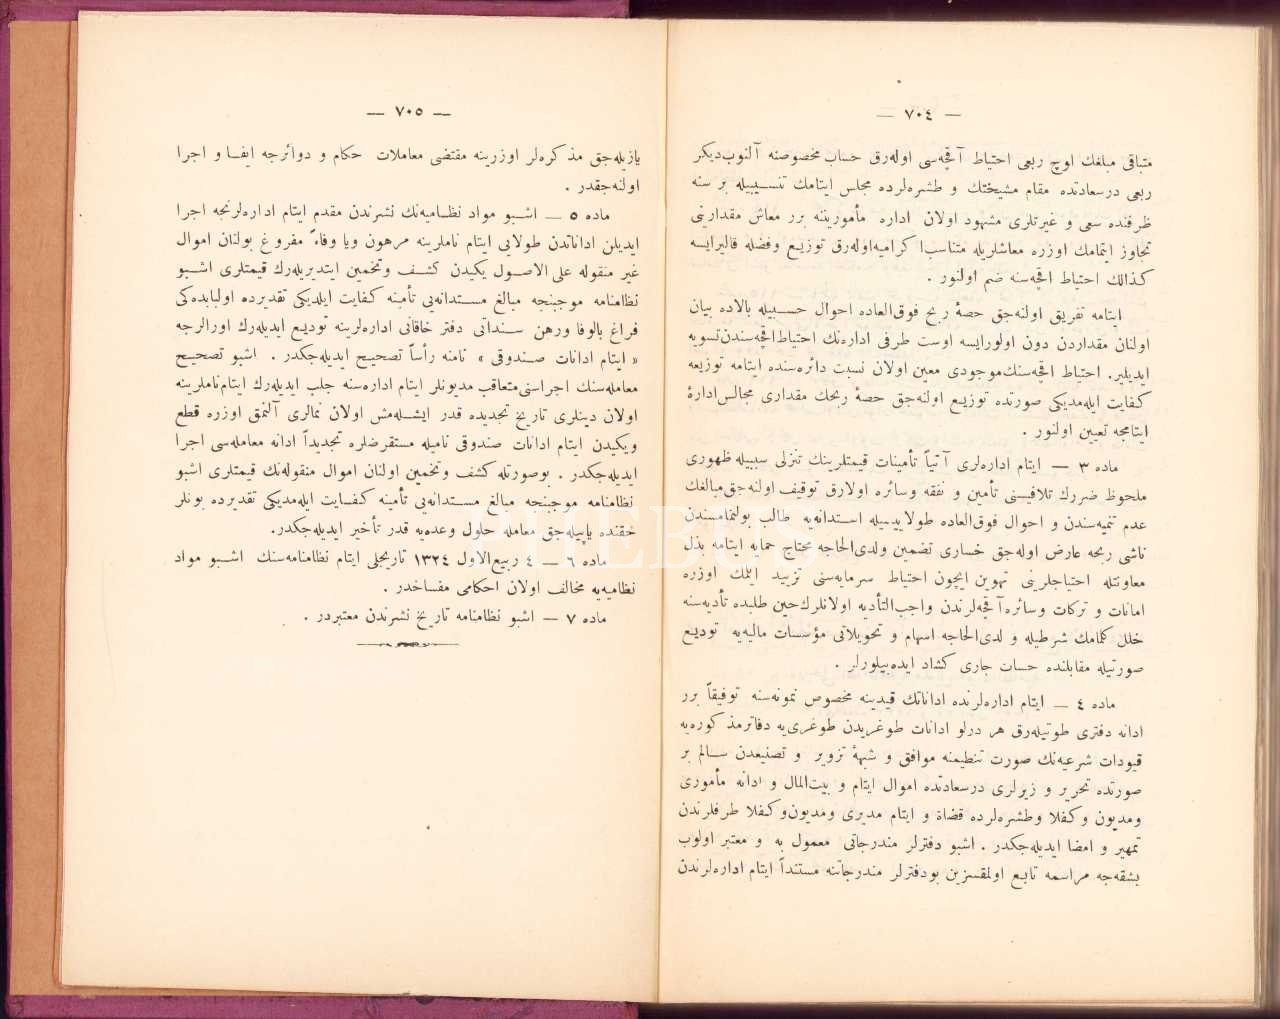 — ٧٠٤ —
متباقى مبلغك اوچ ربعى احتياط آقچه‌سى اوله‌رق حساب مخصوصنه آلنوب ديكر
ربعى درسعادتده مقام مشيختك و طشره‌لرده مجلس ايتامك تنسيبيله بر سنه
ظرفنده سعى و غيرتلرى مشهود اولان اداره مأمورينه برر معاش مقدارينى
تجاوز ايتمامك اوزره معاشلريله متناسباً كراميه اوله‌رق توزيع و فضله قالير ايسه
كذالك احتياط اقچه‌سنه ضم اولنور .
ايتامه تفريق اولنه‌جق حصهٔ ربح فوق‌العاده احوال حسبيله بالاده بيان
اولنان مقداردن دون اولورايسه اوست طرفى اداره‌نك احتياط اقچه‌سندن تسويه
ايديلير. احتياط اقچه‌سنك موجودى معين اولان نسبت دائره‌سنده ايتامه توزيعه
كفايت ايله‌مديكى صورتده توزيع اولنه‌جق حصهٔ ربحك مقدارى مجالس ادارهٔ
ايتامجه تعيين اولنور .
ماده ٣ — ايتام اداره‌لرى آتياً تأمينات قيمتلرينك تنزلى سببيله ظهورى
ملحوظ ضررك تلافيسنى تأمين و نفقه وسائره اولارق توقيف اولنه‌جق مبالغك
عدم تنميه‌سندن و احوال فوق‌العاده طولاييسيله استدانه‌يه طالب بولنمامسندن
ناشى ربحه عارض اوله‌جق خسارى تضمين ولدى‌الحاجه محتاج حمايه ايتامه بذل
معاونتله احتياجلرينى تهوين ايچون احتياط سرمايه‌سنى تزييد ايلمك اوزره
امانات و تركات وسائره آقچه‌لرندن واجب‌التأديه اولانلرك حين طلبده تأديه‌سنه
خلل كلمامك شرطيله و لدى‌الحاجه اسهام و تحويلاتى مؤسسات ماليه‌يه توديع
صورتيله مقابلنده حسات جارى كشاد ايده‌بيلورلر .
ماده ٤ — ايتام اداره‌لرنده اداناتك قيدينه مخصوص نمونه‌سنه توفيقاً برر
ادانه دفترى طوتيله‌رق هر درلو ادانات طوغريدن طوغرى‌يه دفاتر مذكوره‌يه
قيودات شرعيه‌نك صورت تنظيمنه موافق و شبههٔ تزوير و تصنيعدن سالم بر
صورتده تحرير و زيرلرى درسعادتده اموال ايتام و بيت‌المال و ادانه مأمورى
ومديون وكفلا وطشره‌لرده قضاة و ايتام مديرى ومديون وكفلا طرفلرندن
تمهير و امضا ايديله‌جكدر . اشبو دفترلر مندرجاتى معمول به و معتبر اولوب
بشقه‌جه مراسمه تابع اولمقسزين بودفترلر مندرجاتنه مستنداً ايتام اداره‌لرندن
— ٧٠٥ —
يازيله‌جق مذكره‌لر اوزرينه مقتضى معاملات حكام و دوائرجه ايفا و اجرا
اولنه‌جقدر .
ماده ٥ — اشبو مواد نظاميه‌نك نشرندن مقدم ايتام اداره‌لرنجه اجرا
ايديلن اداناتدن طولايى ايتام ناملرينه مرهون ويا وفاءً مفروغ بولنان اموال
غير منقوله على الاصول يكيدن كشف وتخمين ايتديريله‌رك قيمتلرى اشبو
نظامنامه موجبنجه مبالغ مستدانه‌يى تأمينه كفايت ايلديكى تقديرده اولبابده‌كى
فراغ بالوفا ورهن سنداتى دفتر خاقانى اداره‌لرينه توديع ايديله‌رك اورالرجه
« ايتام ادانات صندوقى » نامنه رأساً تصحيح ايديله‌جكدر . اشبو تصحيح
معامله‌سنك اجراسنى متعاقب مديونلر ايتام اداره‌سنه جلب ايديله‌رك ايتام ناملرينه
اولان دينلرى تاريخ تجديده قدر ايشله‌مش اولان نمالرى آلنمق اوزره قطع
ويكيدن ايتام ادانات صندوقى ناميله مستقرضلره تجديداً ادانه معامله‌سى اجرا
ايديله‌جكدر . بوصورتله كشف وتخمين اولنان اموال منقوله‌نك قيمتلرى اشبو
نظامنامه موجبنجه مبالغ مستدانه‌يى تأمينه كفايت ايله‌مديكى تقديرده بونلر
حقنده ياپيله‌جق معامله حلول وعده‌يه قدر تأخير ايديله‌جكدر.
ماده ٦ — ٤ ربيع‌الاول ١٣٢٤ تاريخلى ايتام نظامنامه‌سنك اشبو مواد
نظاميه‌يه مخالف اولان احكامى مفساخدر .
ماده ٧ — اشبو نظامنامه تاريخ نشرندن معتبردر .
PHEBUS